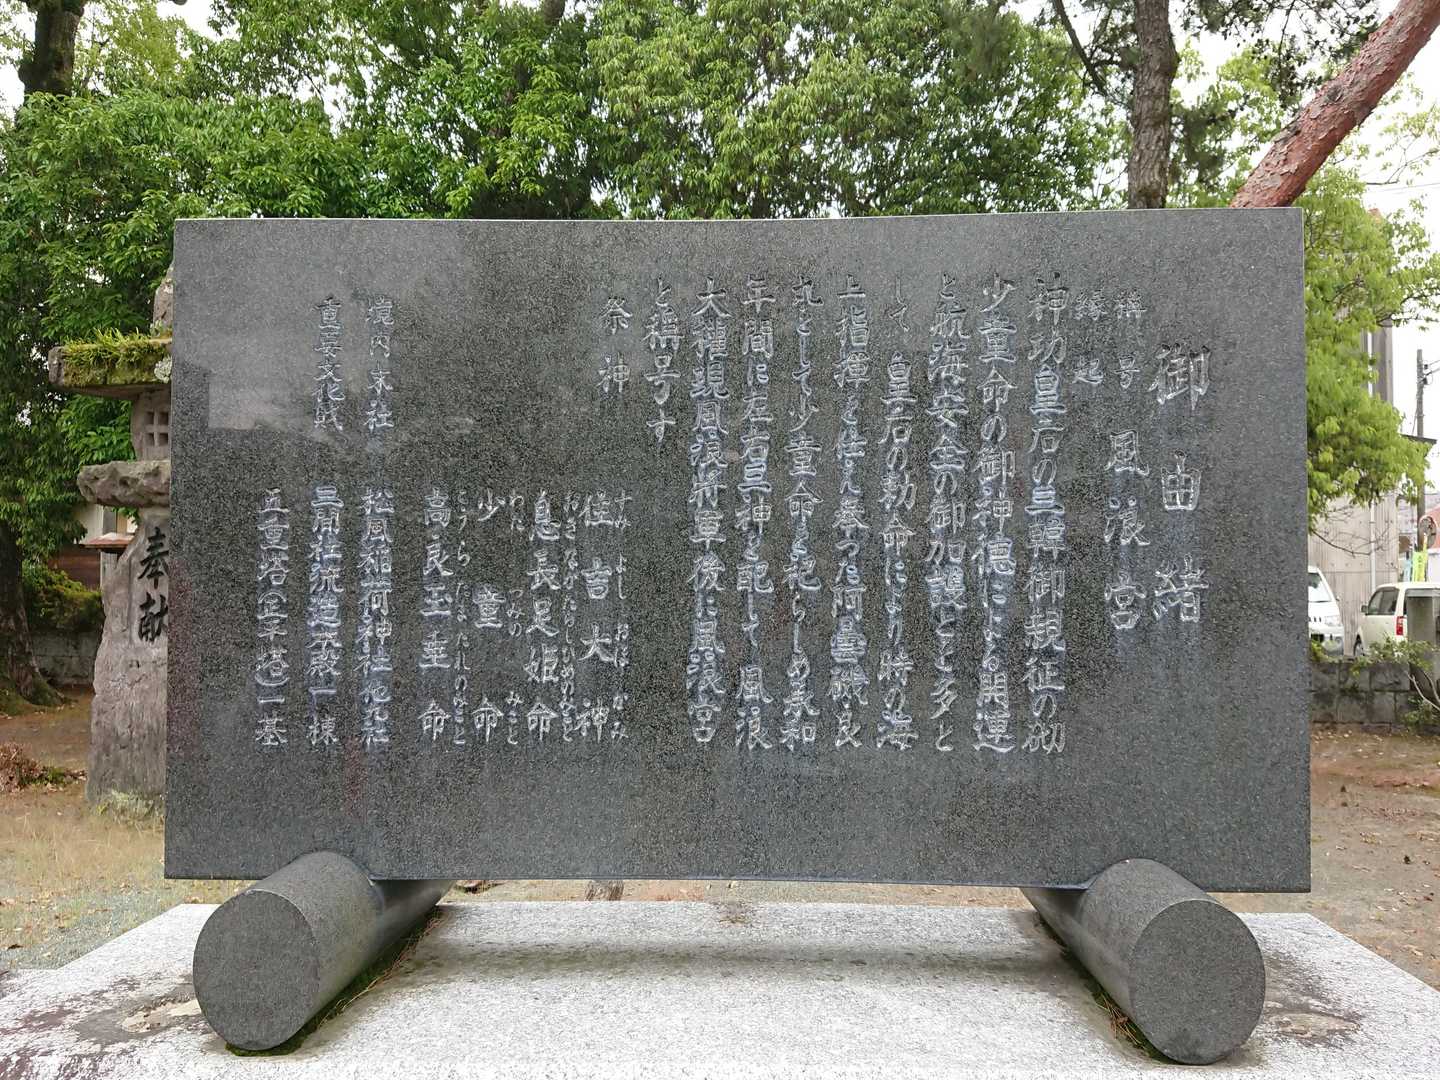 御由緒
称号 風浪宮
縁起
神功皇后の三韓御親征の砌
少童命の御神徳による開運
と航海安全の御加護とを多と
して 皇后の勅命により時の海
上指揮を仕え奉つた阿曇磯良
丸をして少童命を祀らしめ承和
年間に左右三神を配して風浪
大権現風浪将軍後に風浪宮
と称号す
祭神
すみ よし おほ かみ
住吉大神
おきながたらしひめのみこと
息長足姫命
わた つみの みこと
少童命
高良玉垂命
こうら たまたれのみこと
境内末社 松風稲荷神社他九社
重要文化財 三間社流造本殿一棟
五重塔(正平塔)一基
奉献